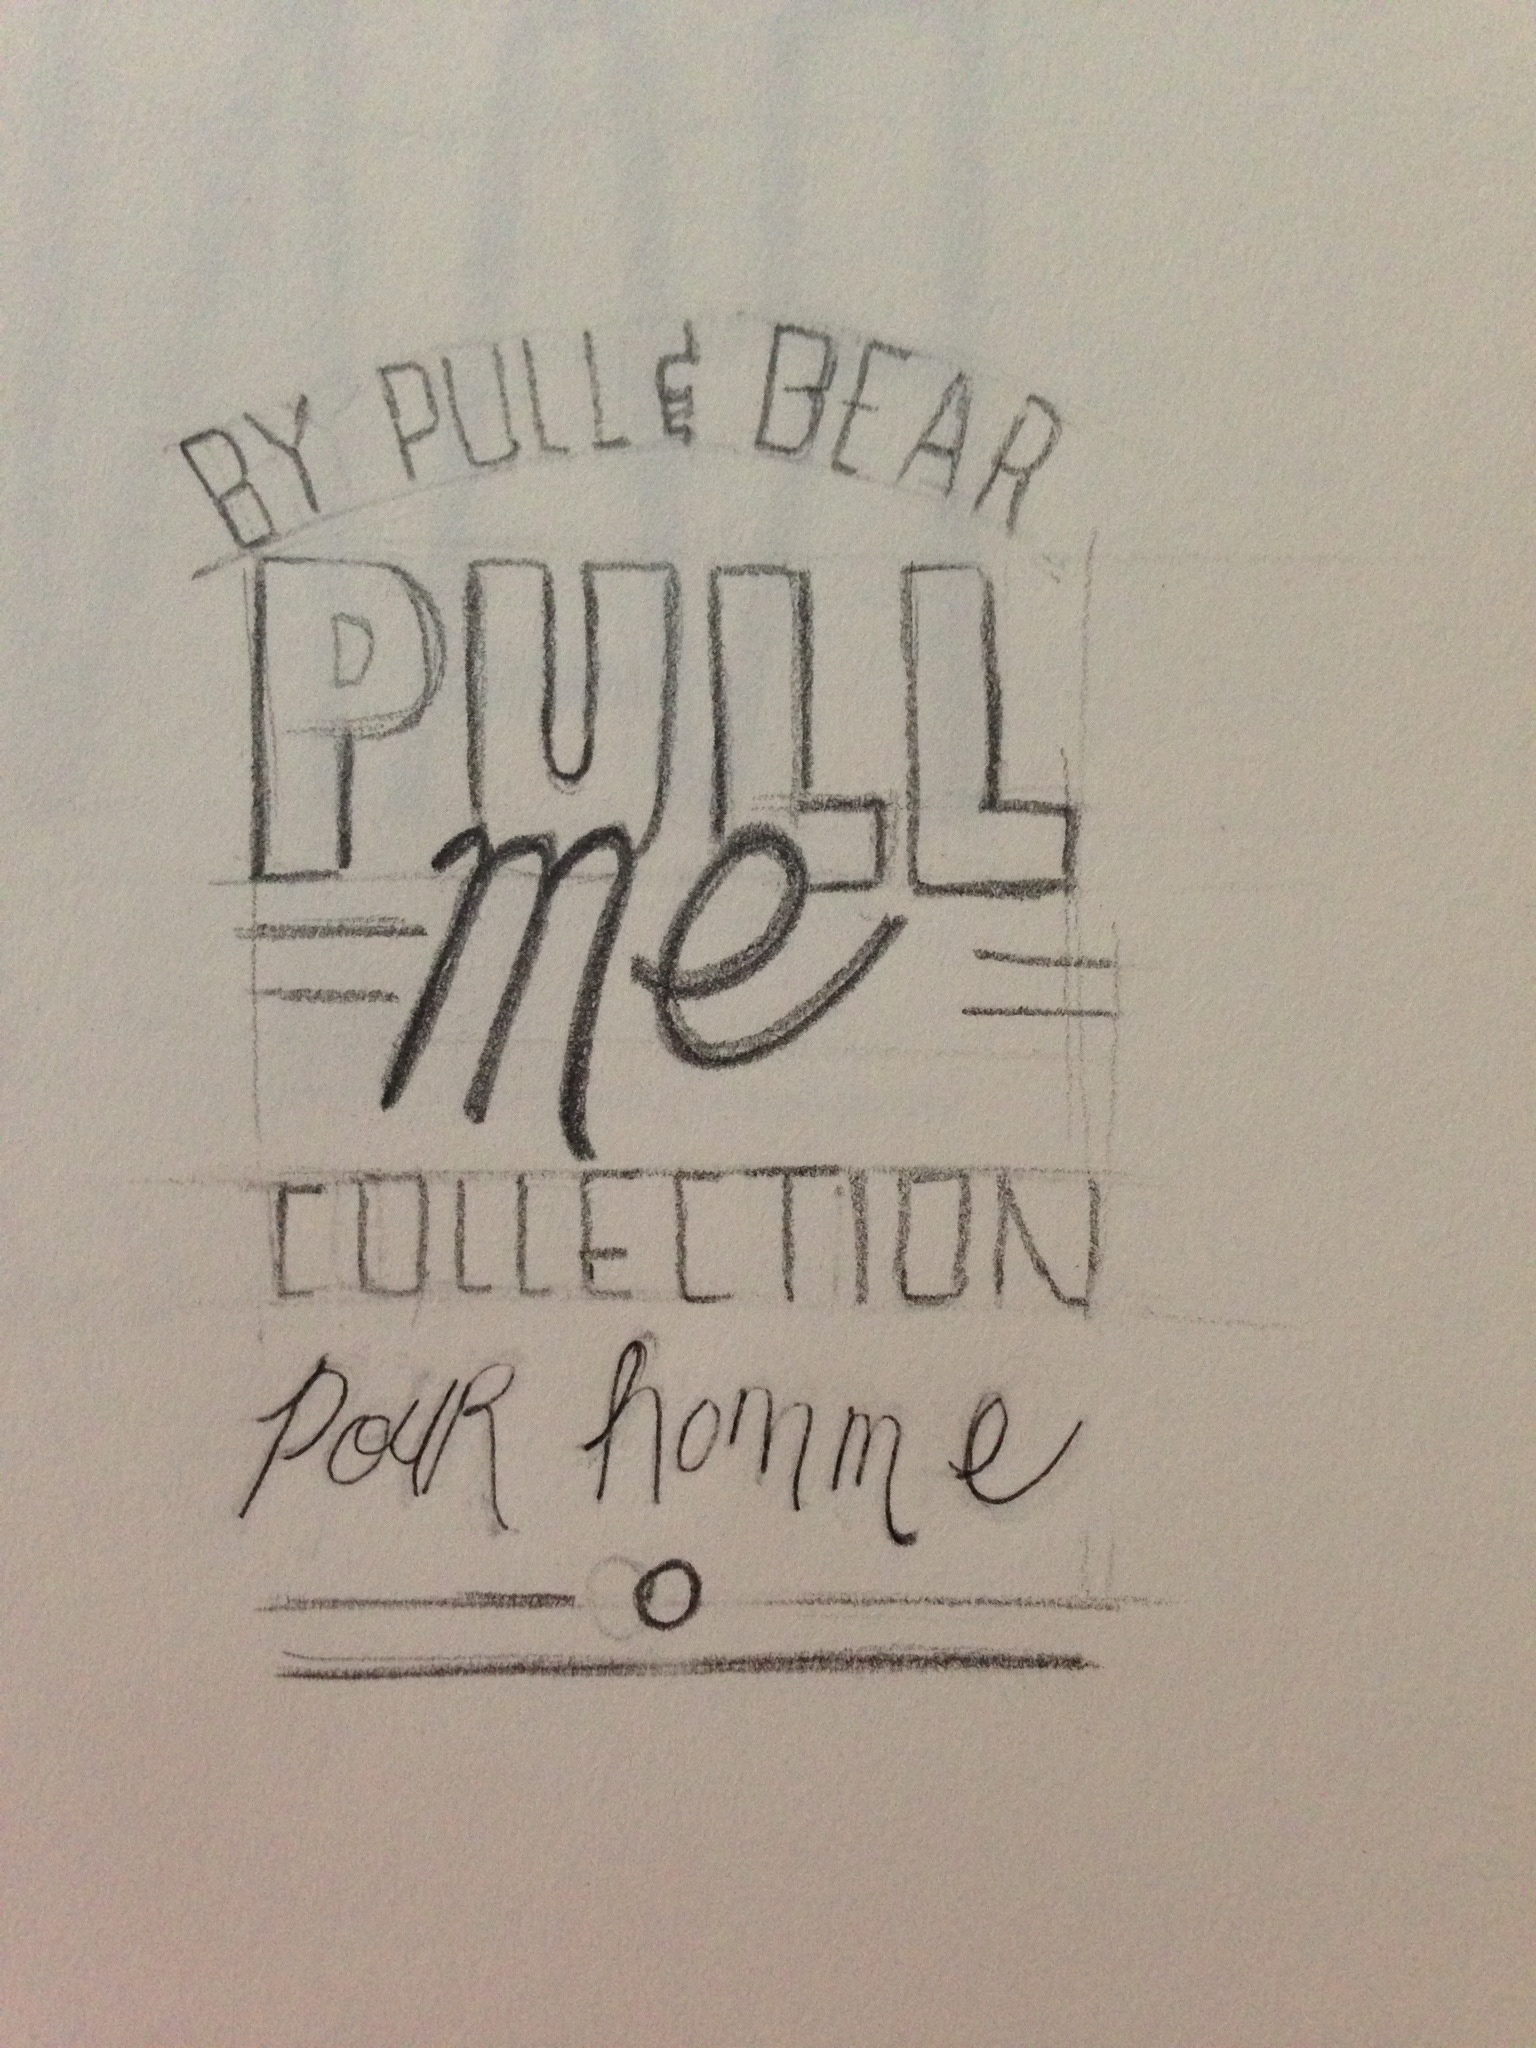 BY PULL & BEAR
PULL
me
COLLECTION
pouR homme